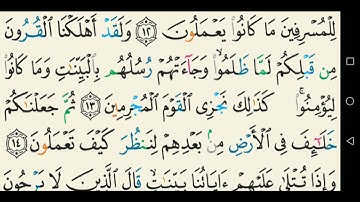 لِلْمُسْرِفِينَ مَا كَانُوا۟ يَعْمَلُونَ ١٢ وَلَقَدْ أَهْلَكْنَا ٱلْقُرُونَ
مِن قَبْلِكُمْ لَمَّا ظَلَمُوا۟ وَجَآءَتْهُمْ رُسُلُهُم بِٱلْبَيِّنَٰتِ وَمَا كَانُوا۟
لِيُؤْمِنُوا۟ كَذَٰلِكَ نَجْزِى ٱلْقَوْمَ ٱلْمُجْرِمِينَ ١٣ ثُمَّ جَعَلْنَٰكُمْ
خَلَٰٓئِفَ فِى ٱلْأَرْضِ مِنۢ بَعْدِهِمْ لِنَنظُرَ كَيْفَ تَعْمَلُونَ ١٤
وَإِذَا تُتْلَىٰ عَلَيْهِمْ ءَايَاتُنَا بَيِّنَٰتٍ قَالَ ٱلَّذِينَ لَا يَرْجُونَ